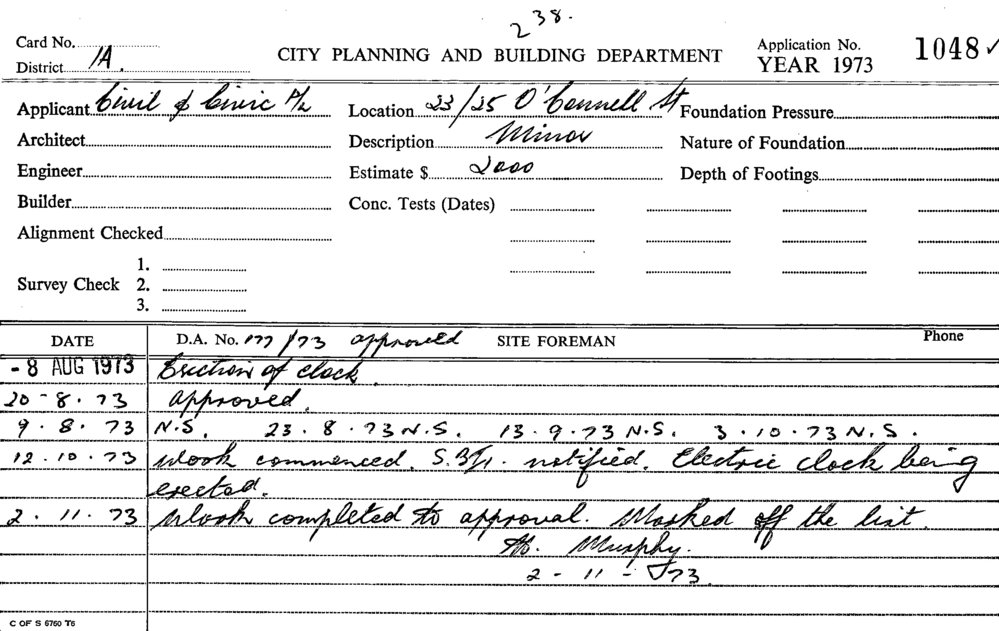 238.
Card No.
District 1A.
CITY PLANNING AND BUILDING DEPARTMENT
Application No. 1048 ✓
YEAR 1973
Applicant Civil & Civic P/L
Location 23/25 O'Connell St
Foundation Pressure
Architect
Description Minor
Nature of Foundation
Engineer
Estimate $ 2000
Depth of Footings
Builder
Conc. Tests (Dates)
Alignment Checked
Survey Check
1.
2.
3.
DATE
D.A. No. 177/73 approved SITE FOREMAN Phone
- 8 AUG 1973 Erection of clock.
20-8.73 approved.
9.8.73 N.S. 23.8.73 N.S. 13.9.73 N.S. 3.10.73 N.S.
12.10.73 Work commenced. notified. Electric clock being
erected.
2.11.73 Work completed to approval. Marked off the list.
Murphy.
2-11-73.
C OF S 6760 T6